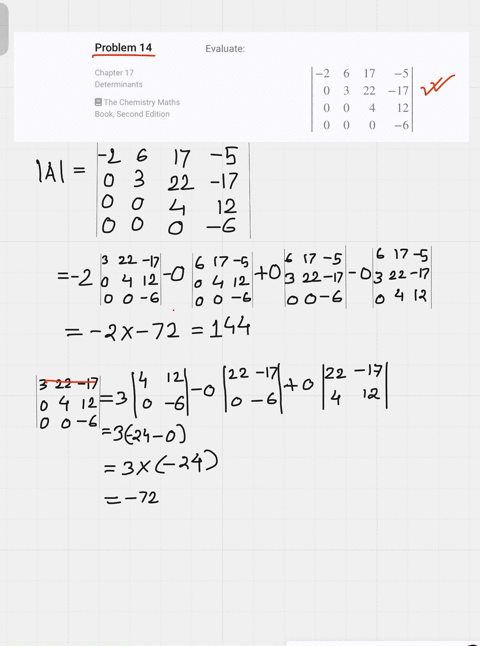 Problem 14 Evaluate:
Chapter 17
Determinants
The Chemistry Maths
Book, Second Edition
|-2 6 17 -5|
|0 3 22 -17|
|0 0 4 12|
|0 0 0 -6|
|A| = |-2 6 17 -5|
|0 3 22 -17|
|0 0 4 12|
|0 0 0 -6|
= -2 |3 22 -17| -0 |6 17 -5| +0 |6 17 -5| -0 |6 17 -5|
|0 4 12| |0 4 12| |3 22 -17| |3 22 -17|
|0 0 -6| |0 0 -6| |0 0 -6| |0 4 12|
= -2 x -72 = 144
|3 22 -17| = 3 |4 12| -0 |22 -17| +0 |22 -17|
|0 4 12| |0 -6| |0 -6| |4 12|
|0 0 -6|
= 3(-24-0)
= 3 x (-24)
= -72